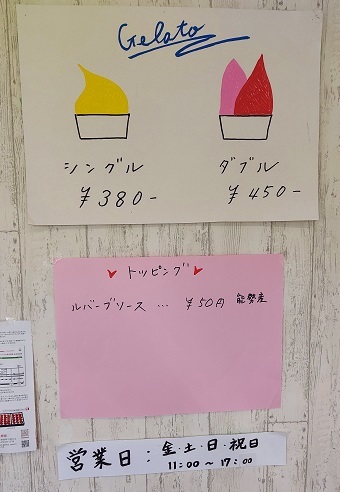 Gelato
シングル ダブル
¥380- ¥450-
トッピング
ルバーブソース … ¥50円 能勢産
営業日:金・土・日・祝日
11:00～17:00